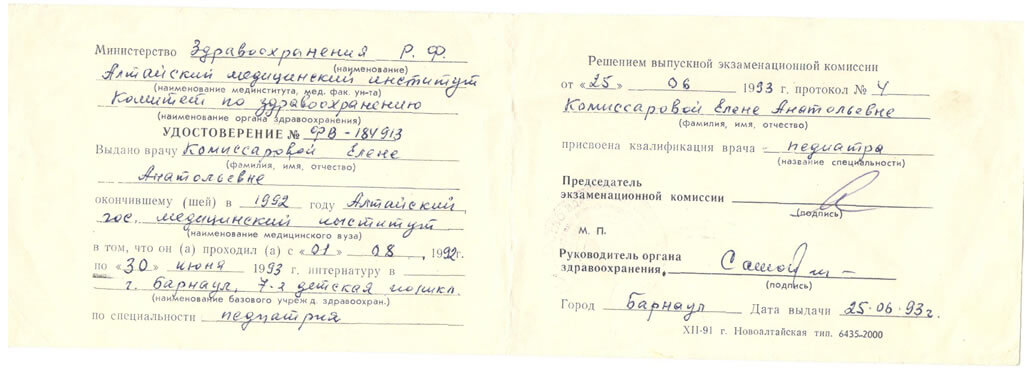 Министерство Здравоохранения Р. Ф.
(наименование)
Алтайский медицинский институт
(наименование мединститута, мед. фак. ун-та)
Комитет по здравоохранению
(наименование органа здравоохранения)
УДОСТОВЕРЕНИЕ № ФВ-184913
Выдано врачу Комиссаровой Елене
(фамилия, имя, отчество)
Анатольевне
окончившему (шей) в 1992 году Алтайский
гос. медицинский институт
(наименование медицинского вуза)
в том, что он (а) проходил (а) с «01» 08 1992г.
по «30» июня 1993 г. интернатуру в
г. Барнаул, 7-я детская поликл.
(наименование базового учрежд. здравоохран.)
по специальности педиатрия
Решением выпускной экзаменационной комиссии
от «25» 06 1993 г. протокол № 4
Комиссаровой Елене Анатольевне
(фамилия, имя, отчество)
присвоена квалификация врача - педиатра
(название специальности)
Председатель
экзаменационной комиссии
(подпись)
М. П.
Руководитель органа
здравоохранения,
(подпись)
Город Барнаул Дата выдачи 25.06.93г.
XII-91 г. Новоалтайская тип. 6435-2000